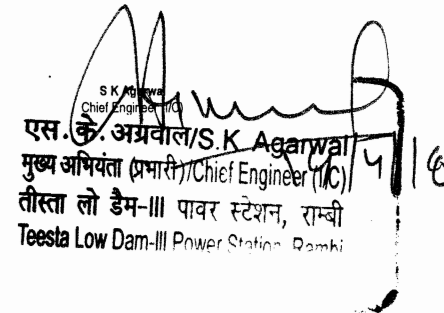 S K Agarwal
Chief Engineer (I/C)
एस. के. अग्रवाल/S.K Agarwal
मुख्य अभियंता (प्रभारी)/Chief Engineer (I/C)
तीस्ता लो डैम-III पावर स्टेशन, राम्बी
Teesta Low Dam-III Power Station, Rambi